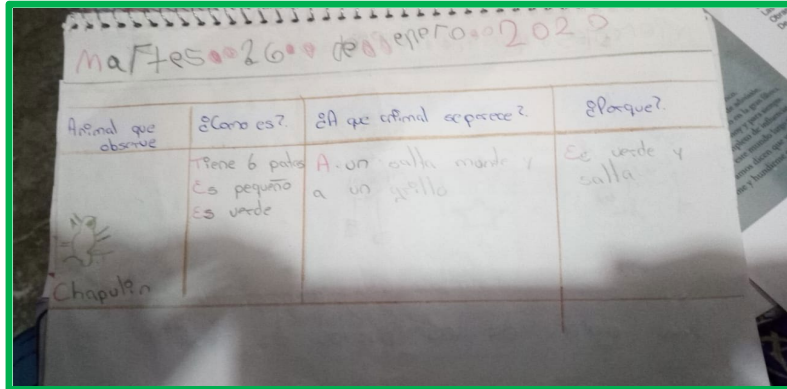 Martes 26 de enero 202
Animal que
observe
¿Como es?
¿A que animal se parece?
¿Porque?
Tiene 6 patas
Es pequeño
Es verde
A un salta monte y
a un grillo
Es verde y
salla
Chapulin